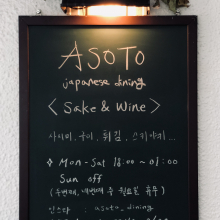 ASOTO
japanese dining
< Sake & Wine >
사시미, 구이, 튀김, 스키야키...
✧ Mon-Sat 18:00 ~ 01:00
Sun off
(두번째, 네번째 주 월요일 휴무)
인스타 : asoto_dining